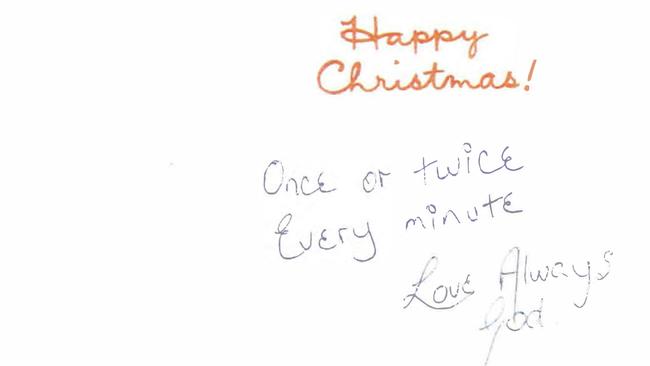 Happy
Christmas!
Once or twice
Every minute
Love Always
God.